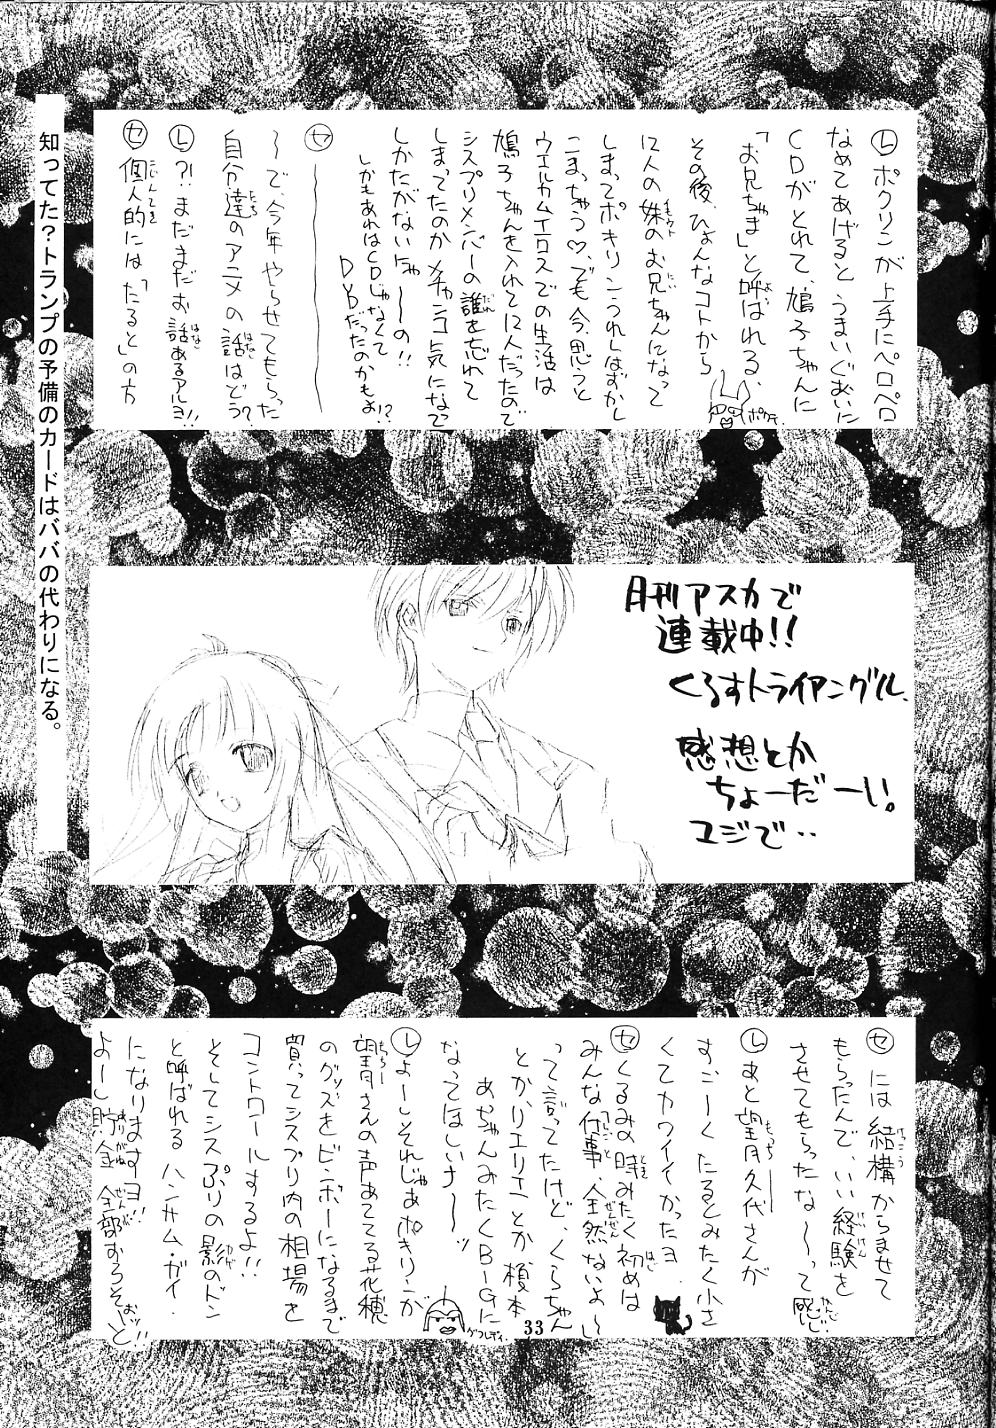 ㋹ポクリンが上手にペロペロ
なめてあげるとうまいぐあいに
CDがとれて、鳩子ちゃんに
「お兄ちゃま」と呼ばれる、
その後、ひょんなコトから
12人の妹のお兄ちゃんになって
しまってポキリンうれしはずかし
こまっちゃう♡、でも今、思うと
ウエルカムハウスでの生活は
鳩子ちゃんを入れて12人だったので
シスプリメンバーの誰を忘れて
しまったのかメチャンコ気になって
しかたがないにゃ〜の!!
しかもあれはCDじゃなくて
DVDだったのかもよ!?
ポクテ
㋝
〜で、今年やらせてもらった
自分達のアニメの話はどう?
㋹?!まだまだお話あるアルヨ!!
㋝個人的には「たると」の方
知ってた?トランプの予備のカードはババの代わりになる。
月刊アスカで
連載中!!
くるすトライアングル、
感想とか
ちょーだーい。
ユジで‥
㋝には結構からませて
もらったんで、いい経験を
させてもらったな〜って感じ
㋹あと望月久代さんが
すごーくたるとみたく小さ
くてカワイイかったヨ
㋝くるみの時みたく初めは
みんな仕事、全然ないよ〜
って言ってたけど、くらちゃん
とか、リエリエとか、榎本
あやちゃんみたくBIGに
なってほしいナ〜ッ
㋹よーしそれじゃあポキリンが
望月さんの声あててる花穂
のグッズをビンボーになるまで
買ってシスプリ内の相場を
コントロールするよ!!
そしてシスぷりの影のドン
と呼ばれるハンサム・ガイ
になりますヨ!!
よーし貯金全部おろそっと
33